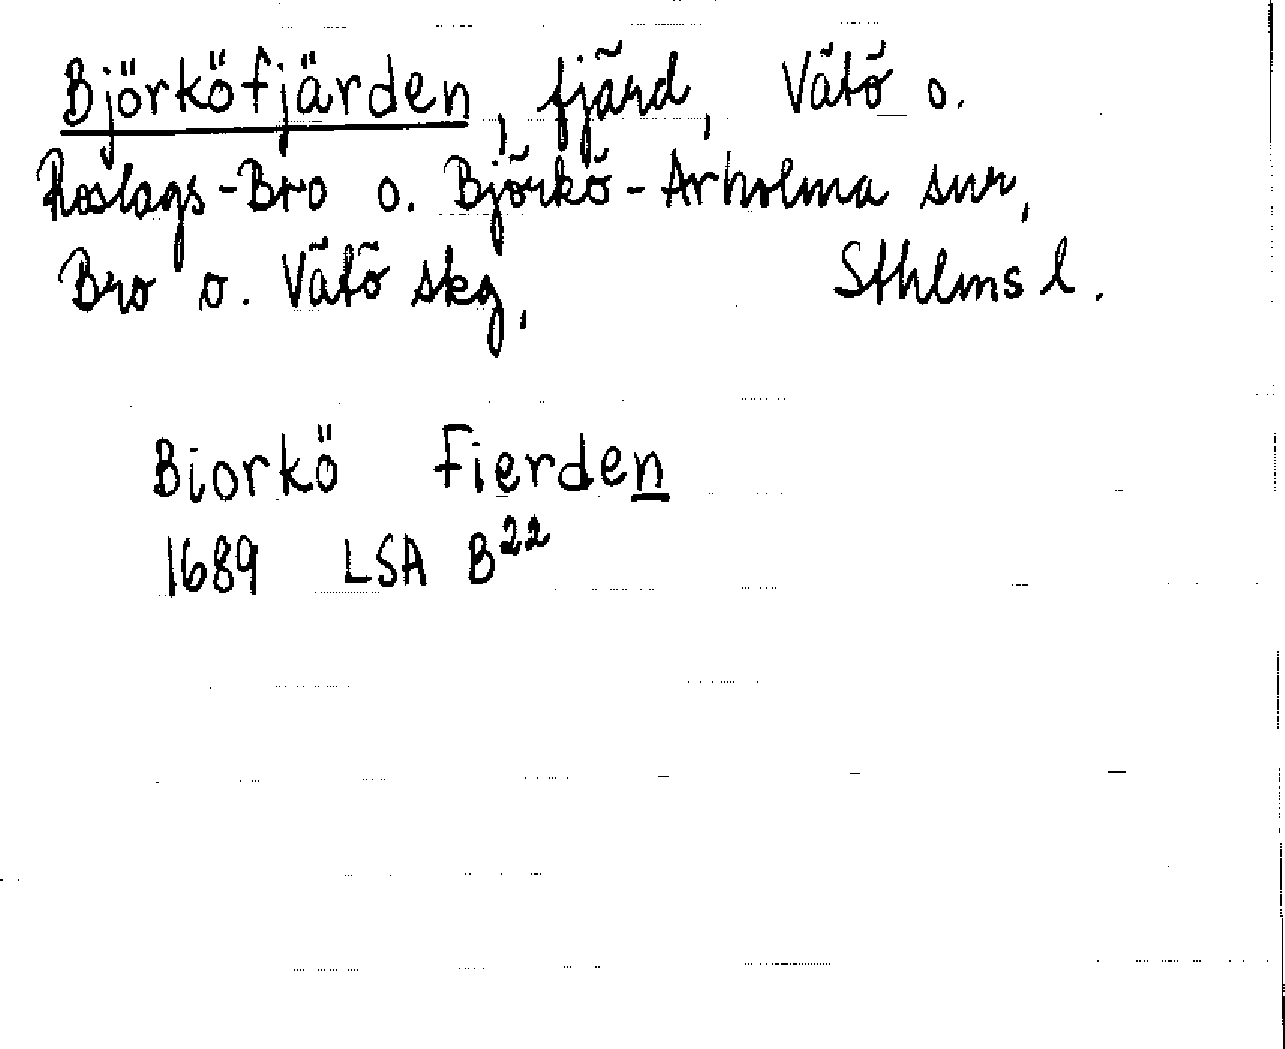 Björköfjärden, fjärd, Vätö o.
Roslags-Bro o. Björkö-Arholma snr,
Bro o. Vätö skg, Sthlms l.
Biorkö Fierden
1689 LSA B22